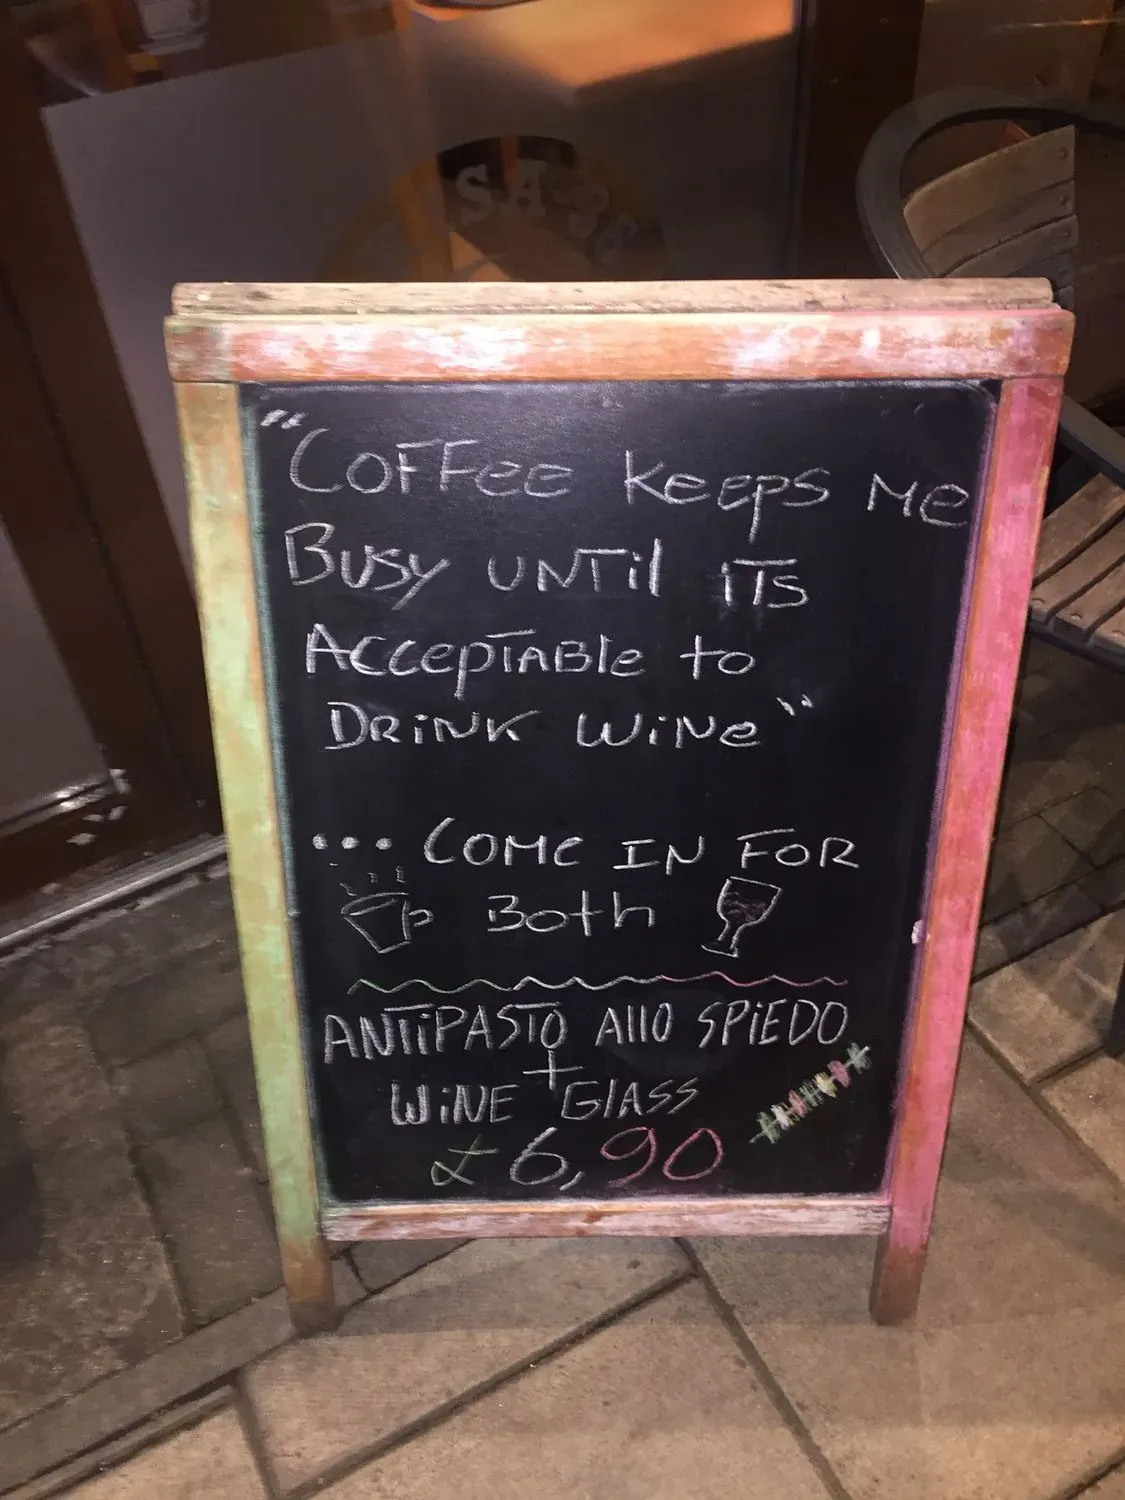 "COFFee Keeps Me
Busy UNTil iTs
AccepTABle to
DRiNK WiNe"
... COMe IN FOR
Both
ANTiPASTO AllO SPiEDO
+
WiNE GlASS
£6,90